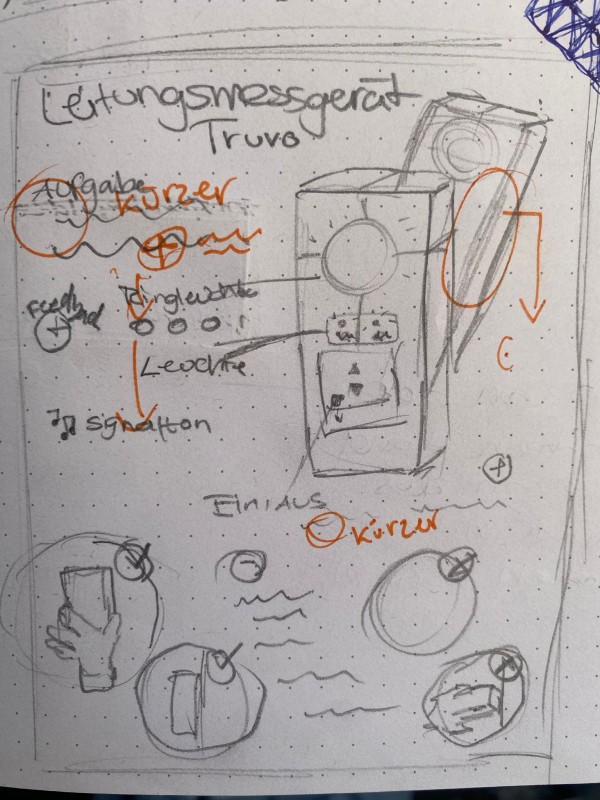 Leitungsmessgerät
Truvo
Aufgabe
kürzer
Ringleuchte
Feedback
Leuchte
Signalton
EIN/AUS
kürzer